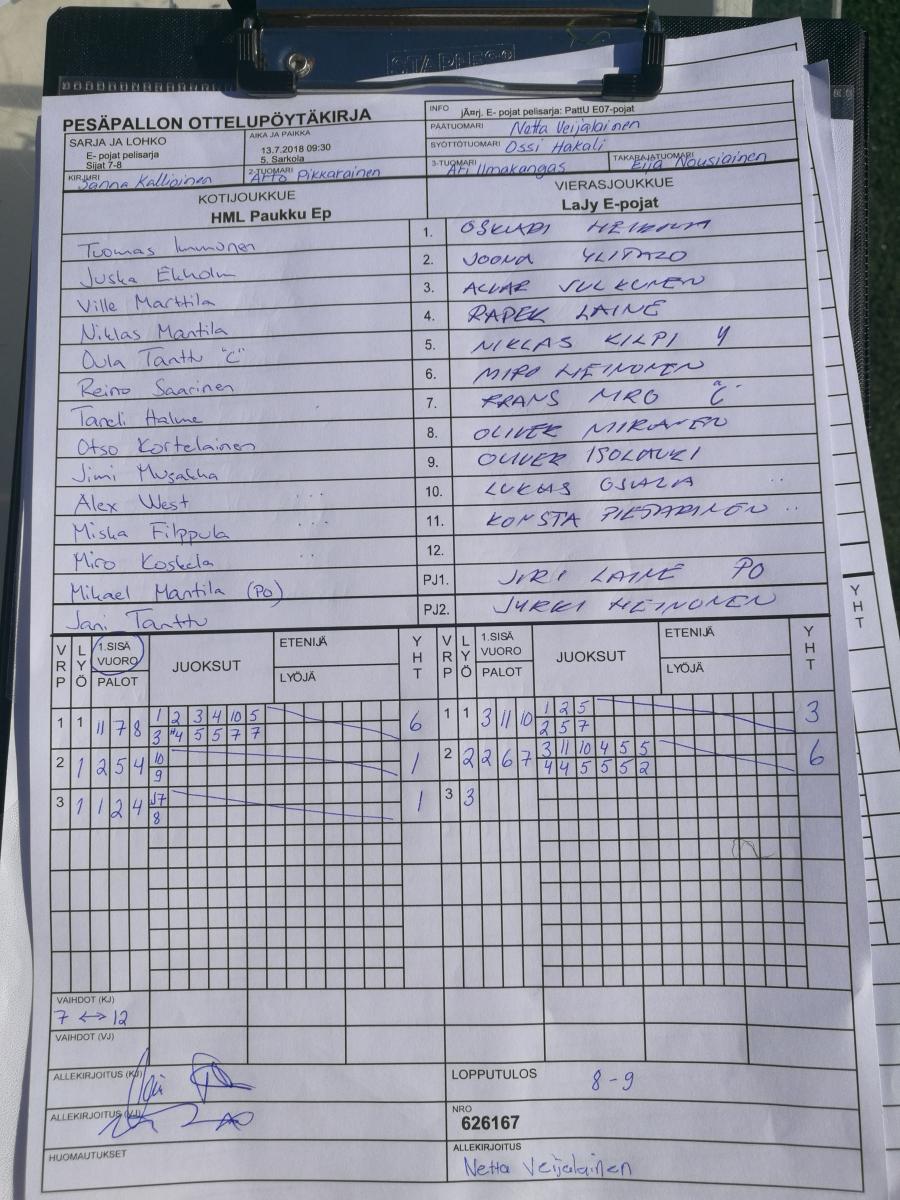 PESÄPALLON OTTELUPÖYTÄKIRJA
INFO jÃ¤rj. E- pojat pelisarja: PattU E07-pojat
PÄÄTUOMARI Netta Veijalainen
SARJA JA LOHKO
E- pojat pelisarja
Sijat 7-8
AIKA JA PAIKKA
13.7.2018 09:30
5, Sarkola
SYÖTTÖTUOMARI Ossi Hakali
KIRJURI Sanna Kallioinen
2-TUOMARI Arto Pikkarainen
3-TUOMARI Ari Ilmakangas
TAKARAJATUOMARI Eija Nousiainen
KOTIJOUKKUE
HML Paukku Ep
VIERASJOUKKUE
LaJy E-pojat
Tuomas Immonen 1. OSKARI
Juska Ekholm 2. JOONA YLITALO
Ville Marttila 3. JULKUNEN
Niklas Mantila 4. LAINE
Oula Tanttu "C" 5. NIKLAS KILPI
Reino Saarinen 6. MIRO HEINONEN
Taneli Halme 7. FRANS "C"
Otso Kortelainen 8. OLIVER
Jimi Musakka 9. OLIVER ISOLAURI
Alex West 10. LUKAS
Miska Filppula 11. KONSTA
Miro Koskela 12.
Mikael Mantila (PO) PJ1. JIRI LAINE PO
Jani Tanttu PJ2. JYRKI HEINONEN
VRP LYÖ 1.SISÄ VUORO PALOT JUOKSUT ETENIJÄ LYÖJÄ YHT VRP LYÖ 1.SISÄ VUORO PALOT JUOKSUT ETENIJÄ LYÖJÄ YHT
1 1 11 7 8 1 2 3 4 10 5 6 1 1 3 11 10 1 2 5 3
3 4 5 5 7 7 2 5 7
2 1 2 5 4 10 1 2 2 2 6 7 3 11 10 4 5 5 6
9 4 4 5 5 5 2
3 1 1 2 4 J7 1 3 3
8
VAIHDOT (KJ)
7 <-> 12
VAIHDOT (VJ)
ALLEKIRJOITUS (KJ)
LOPPUTULOS 8-9
ALLEKIRJOITUS (VJ)
NRO
626167
HUOMAUTUKSET
ALLEKIRJOITUS
Netta Veijalainen
YHT